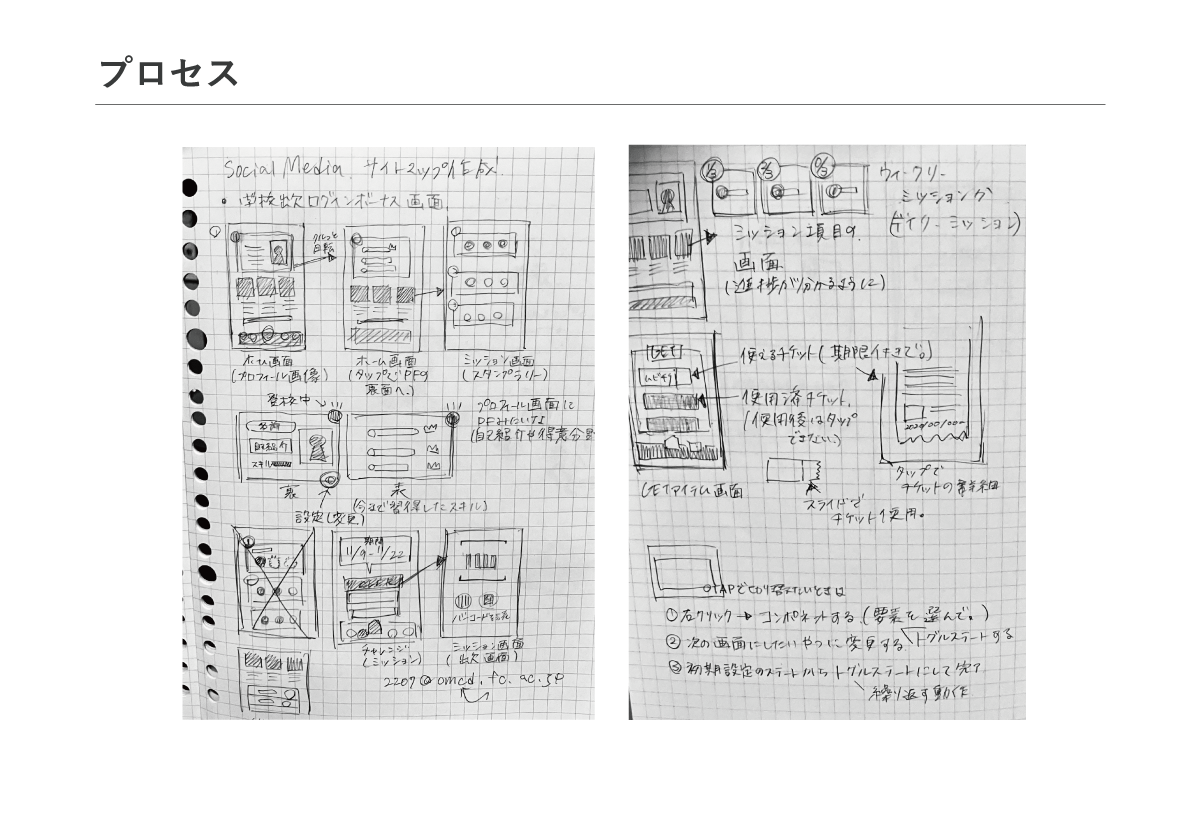 プロセス
Social Media サイトマップ作成
・学校出欠ログインボーナス画面
くるっと
回転
ホーム画面
(プロフィール画像)
ホーム画面
(タップでPFの
裏面へ)
ミッション画面
(スタンプラリー)
登校中
プロフィール画面に
(自己紹介や得意分野
名前
自己紹介
スキル
裏
表
(今まで習得したスキル)
設定(変更)
期間
11/9-11/22
チャレンジ
(ミッション)
バーコードを
ミッション画面
(出欠画面)
2209@omcd.fc.ac.jp
1/3
2/3
0/3
ウィークリー
ミッション
(デイリーミッション)
ミッション項目の
画面
(進捗が分かるように)
GET
使えるチケット(期限付きで。)
使用済チケット
(使用後はタップ
できない)
GETアイテム画面
スライドで
チケット使用。
タップで
チケットの詳細
0TAPで切り替えたいときは
①右クリック→コンポネットする(要素を選んで。)
②次の画面にしたいやつに変更する
トグルステートする
③初期設定のステートからトグルステートにして完了
繰り返す動作